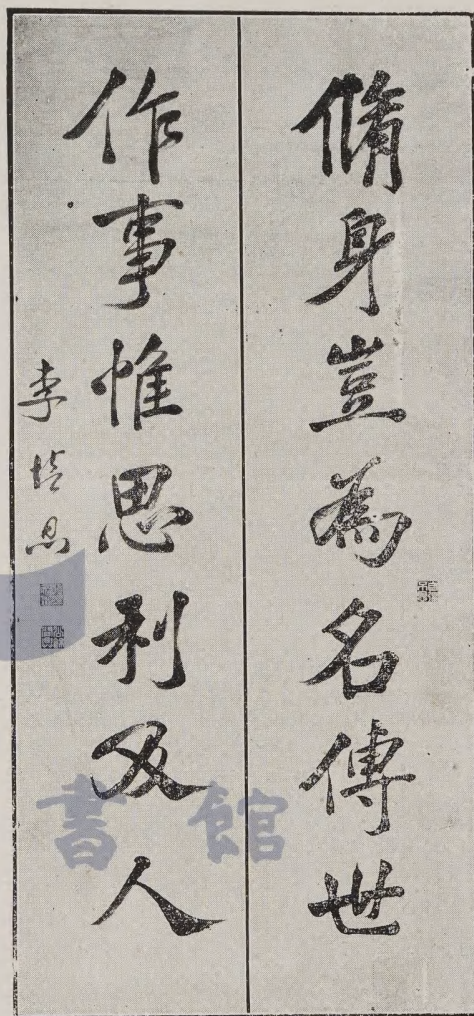 脩身豈為名傳世
作事惟思利及人
李培恩
書館